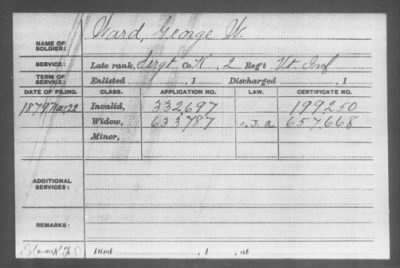 NAME OF SOLDIER: Ward, George W.
SERVICE: Late rank, Sergt Co. K, 2 Reg't Vt. Inf
TERM OF SERVICE: Enlisted , 1 Discharged , 1
DATE OF FILING. CLASS. APPLICATION NO. LAW. CERTIFICATE NO.
1879 22 Invalid, 332697 199250
Widow, 633787 657668
Minor,
ADDITIONAL SERVICES:
REMARKS:
Died , 1 , at